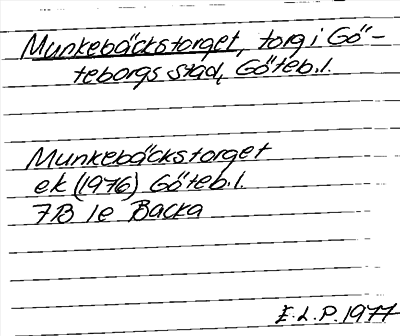 Munkebäckstorget, torg i Gö-
teborgs stad, Göteb. l.
Munkebäckstorget
ek (1976) Göteb. l.
7B 1e Backa
E.L.P. 1977